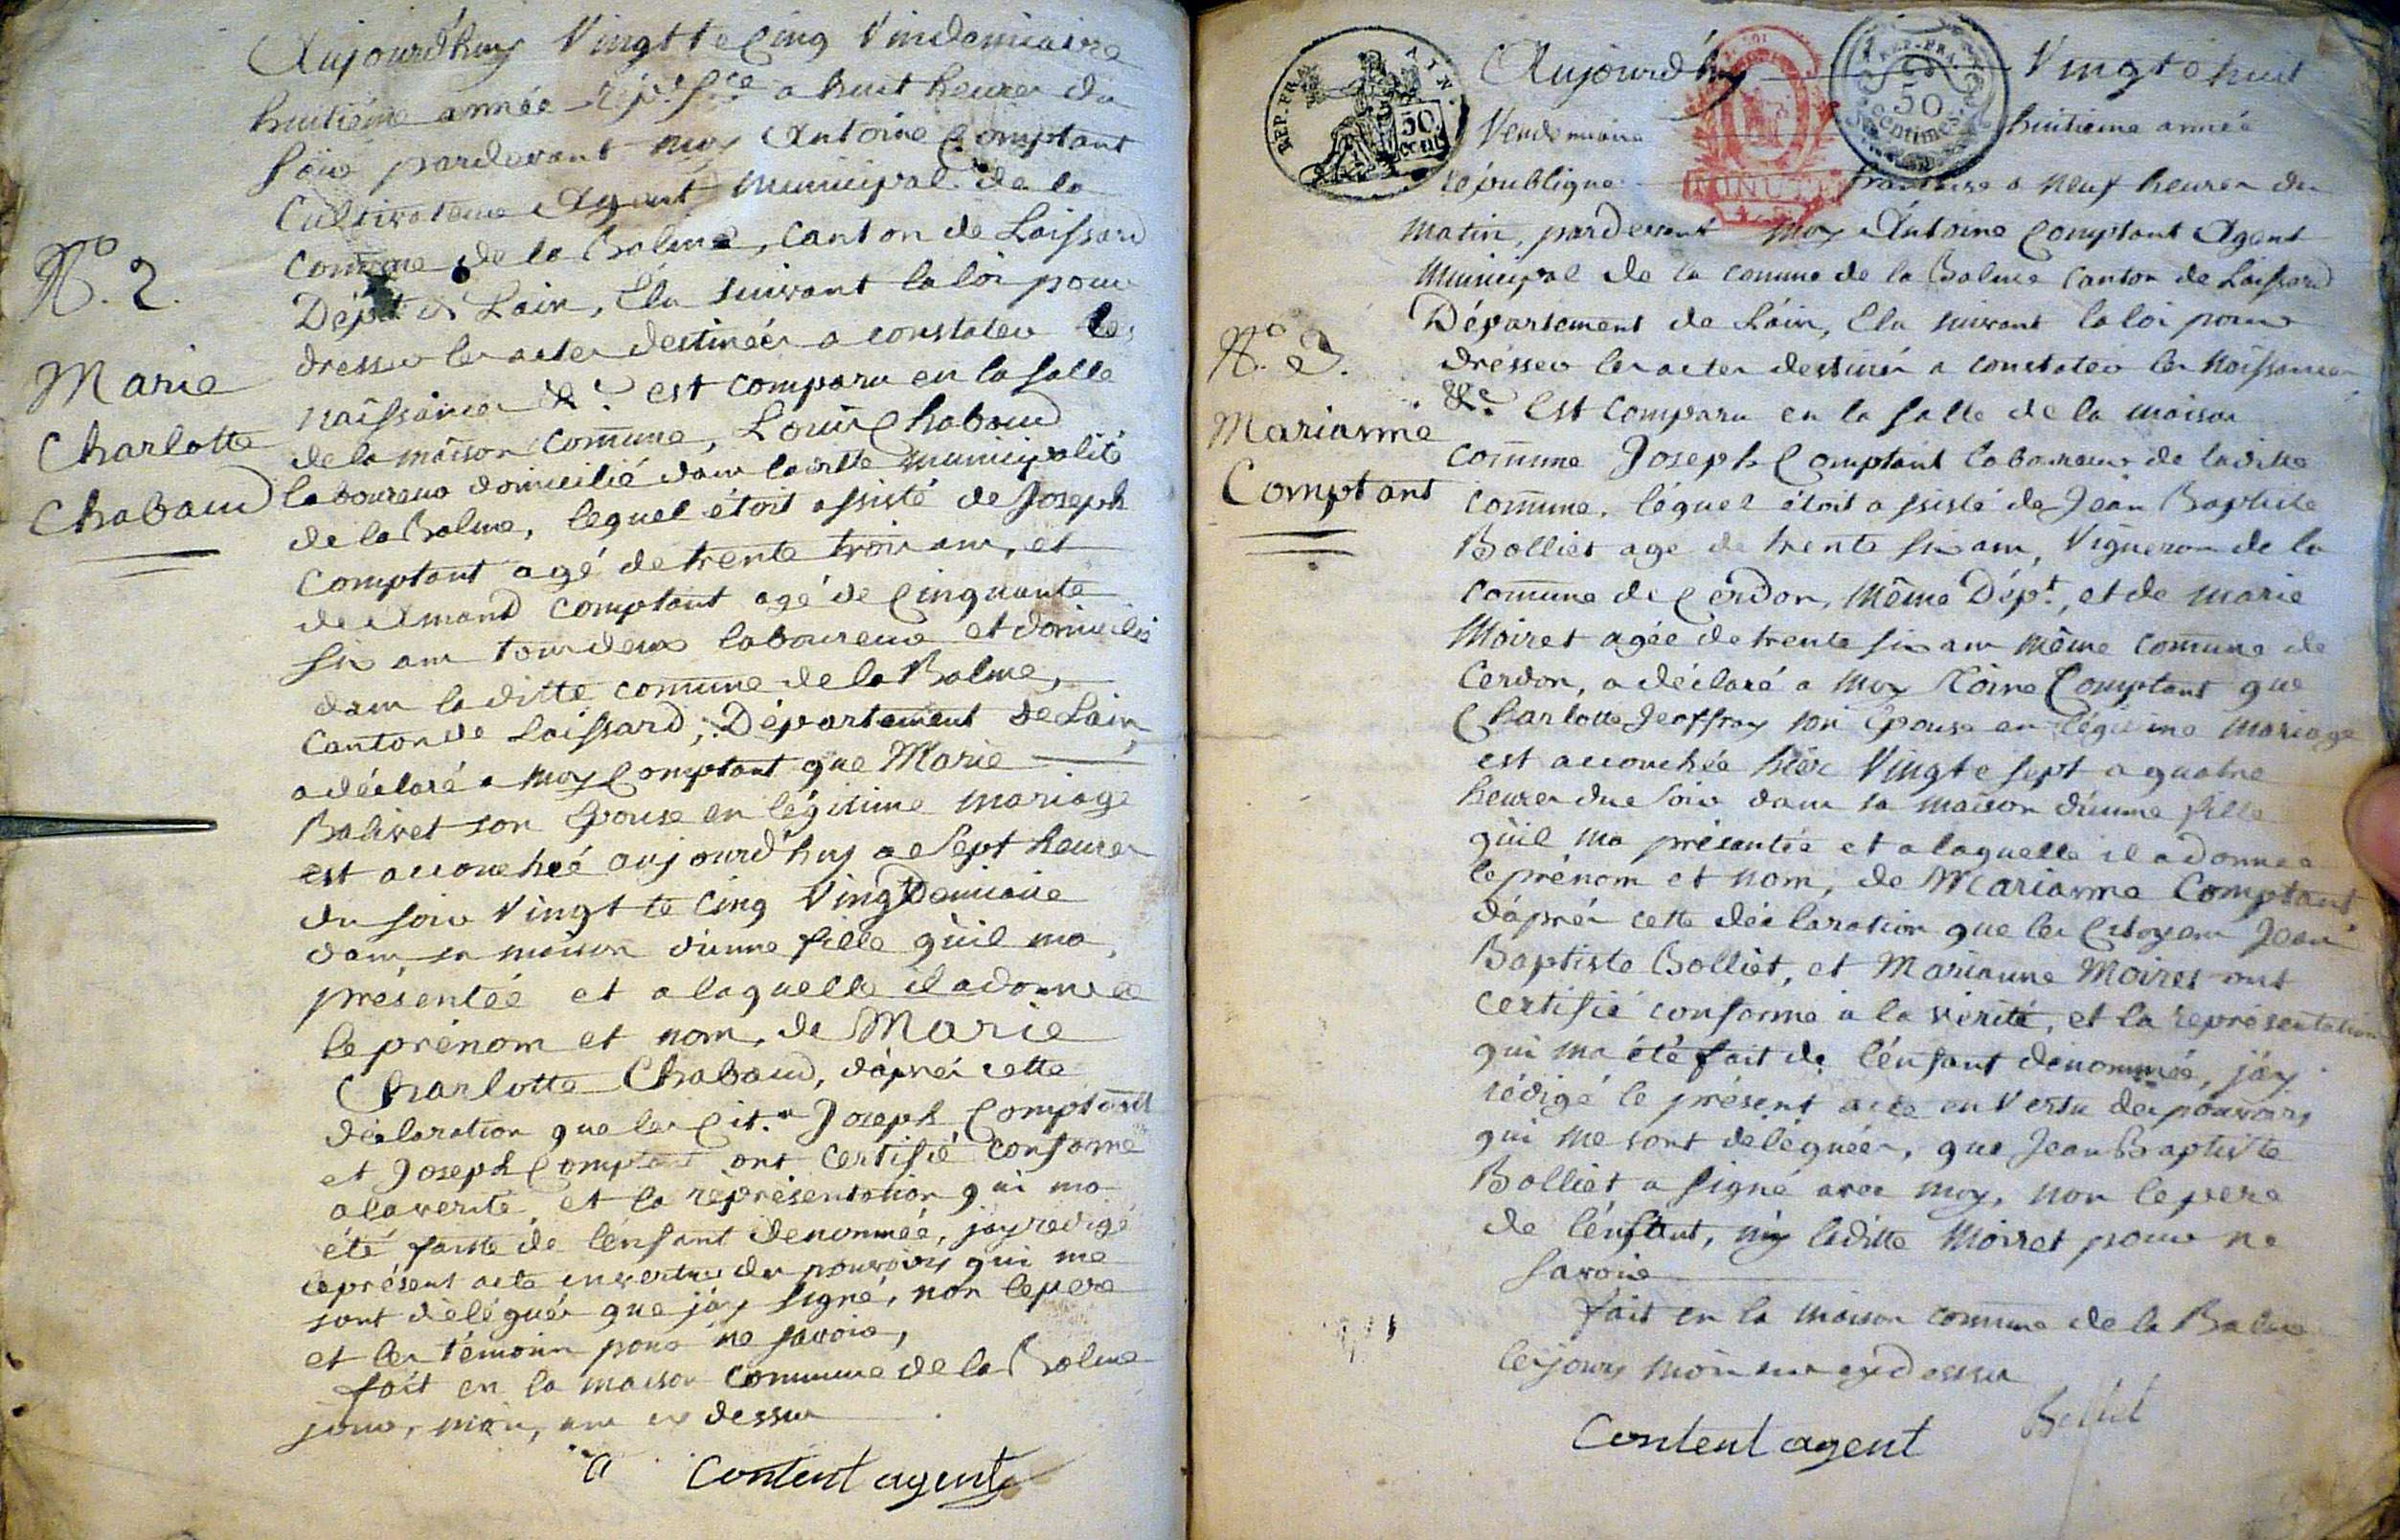 Aujourd'huy Vingt te Cinq Vindemiaire
huitiéme année a huit heures du
soir pardevant moy Antoine Comptant
Cultivateur Agent municipal de la
comune de la Balme, canton de Laissard
Dépt de Lain, Elu suivant la loi pour
dresser les actes destinées a constater les
naissances &c est comparu en la salle
de la maison comune, Louis Chabaud
laboureur domicilié dans laditte municipalité
de la Balme, lequel étoit assisté de Joseph
Comptant agé de trente trois ans, et
de Amand Comptant agé de Cinquante
six ans tous deux laboureur et domicilié
dans la ditte comune de la Balme,
Canton de Laissard, Département de Lain,
a déclaré a moy Comptant que Marie
Balivet son Epouse en légitime mariage
est accouchée aujourd'huy a Sept heures
du soir Vingt te Cinq Vingdemiaire
dans sa maison d'unne fille qu'il ma
présentée et a laquelle il a donnée
le prénom et nom, de Marie
Charlotte Chabaud, d'aprés cette
déclaration que les Cit.n Joseph Comptant
et Joseph Comptant ont certifié conforme
a la verité, et la représentation qui ma
été faitte de l'énfant denommée, j'ay redigé
le présent acte en vertus des pouvoirs qui me
sont délégués que j'ay signé, non le pere
et les témoins pour ne savoir,
fait en la maison commune de la Balme
jour, mois, ans cy dessus
a Content agent
N.o 2.
Marie
Charlotte
Chabaud
REP. FRA. AIN.
50 cent
MINUTE
REP. FRA.
50
centimes
Aujourd'huy Vingt e huit
Vendemiaire huitieme année
république francaise a neuf heures du
matin, pardevant moy Antoine Comptant Agent
municipal de la comune de la Balme Canton de Laissard
Département de Láin, Elu suivant la loi pour
dresser les actes destiné a constater les naissances
&c. Est comparu en la salle de la maison
comune Joseph Comptant laboureur de laditte
comune. léquel étoit assisté de Jean Baptiste
Bolliet agé de trente six ans, Vigneron de la
comune de Cerdon, même Dépt, et de marie
Moiret agée de trente six ans même comune de
Cerdon, a déclaré a moy Comptant que
Charlotte Jeoffray son Epouse en légitime mariage
est accouchée hiér Vingt e sept a quatre
heures du soir dans sa maison d'unne fille
qu'il ma présentée et a laquelle il a donnée
le prénom et nom, de Marianne Comptant
d'áprés cette déclaration que les Citoyens Jean
Baptiste Bolliet, et Marianne Moiret ont
certifié conforme a la vérité, et la représentation
qui ma été fait de l'énfant dénommée, j'ay
rédigé le présent acte en Vertu des pouvoirs
qui me sont délégués, que Jean Baptiste
Bolliet a signé avec moy, non le pere
de l'énfant, ny laditte Moiret pour ne
savoir
fait en la maison comune de la Balme
les jours mois ans cy dessus
Content agent
N.o 3.
Marianne
Comptant